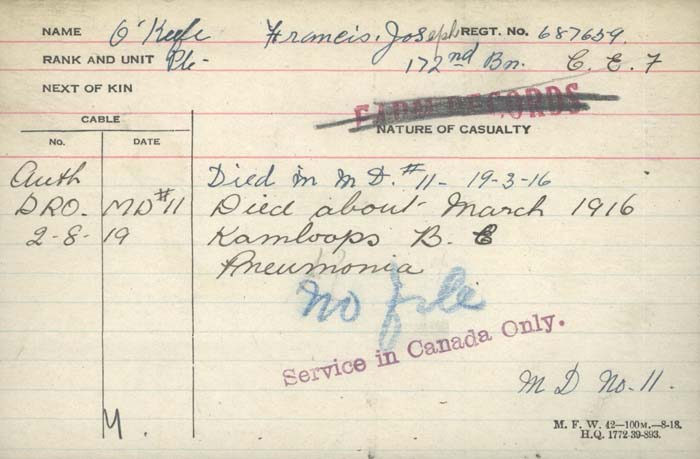 NAME O'Keefe Francis. Joseph REGT. No. 687659.
RANK AND UNIT Pte- 172nd Bn. C. E. F
NEXT OF KIN
FARM RECORDS
CABLE NATURE OF CASUALTY
No. DATE
Auth Died in M D. #11- 19-3-16
DRO. MD #11 Died about March 1916
2-8-19 Kamloops B. C
Pneumonia
No file
Service in Canada Only.
M D No. 11.
M. F. W. 42—100M.—8-18.
H.Q. 1772-39-893.